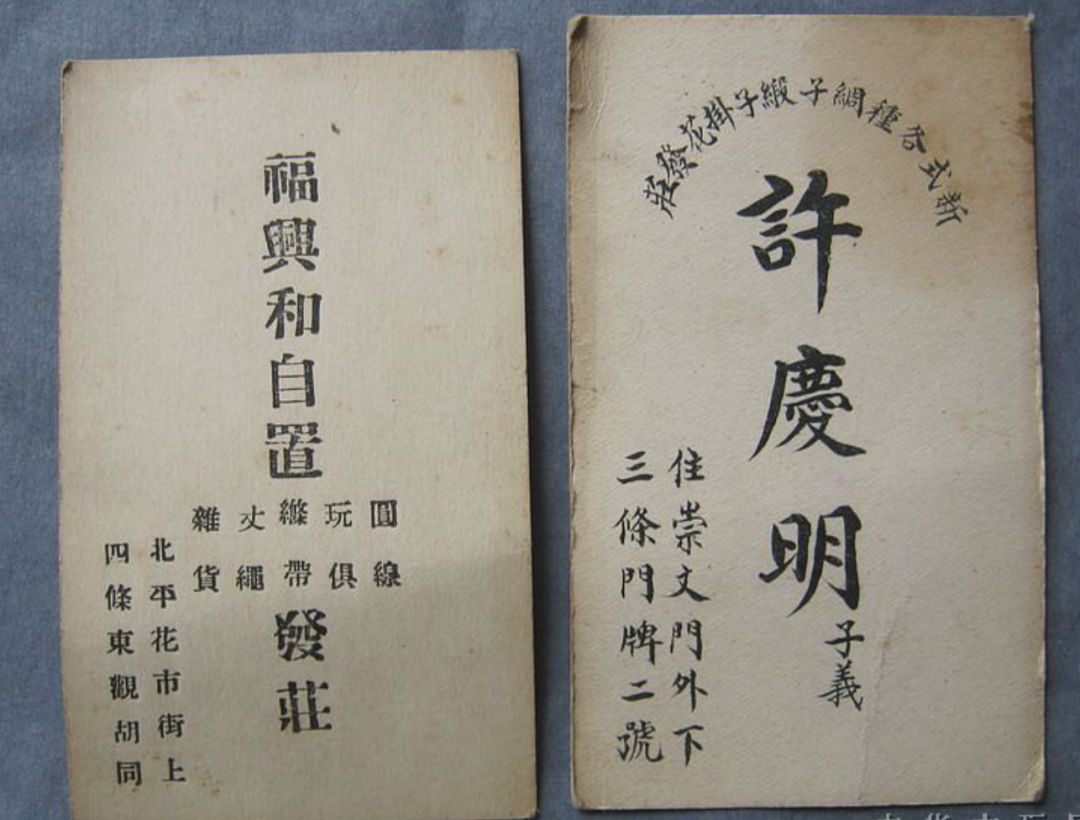 福興和自置
圓線
玩俱
縧帶
丈繩
雜貨
發莊
北平花市街上
四條東觀胡同
新式各種綢子緞子掛花發莊
許慶明
子義
住崇文門外下
三條門牌二號